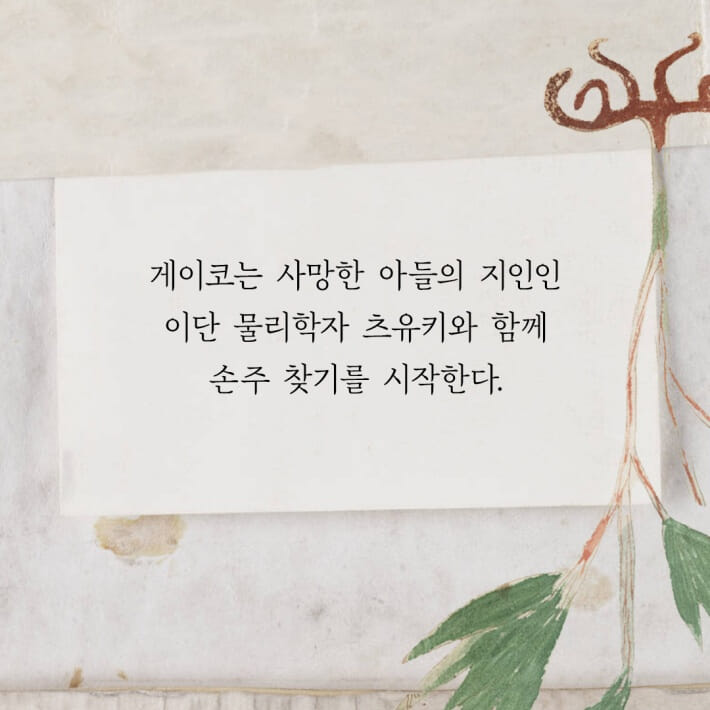 게이코는 사망한 아들의 지인인
이단 물리학자 츠유키와 함께
손주 찾기를 시작한다.